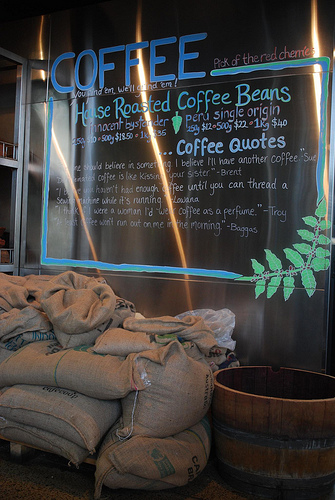 COFFEE
Pick of the red cherries
You send 'em, we'll grind 'em!
House Roasted Coffee Beans
Innocent bystander - Peru single origin
250g $12 = 500g $22 = 1kg $40
... Coffee Quotes
should believe in something I believe I'll have another coffee" Sue
coffee is like kissin your sister" - Brent
"I haven't had enough coffee until you can thread a
Sewing machine while it's running -
"I think if I were a woman I'd wear coffee as a perfume." - Troy
coffee won't run out on me in the morning." - Baggas